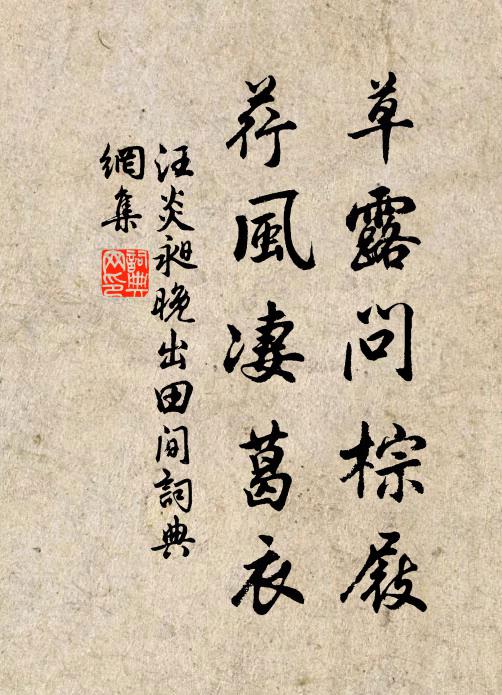 草露問棕屐
荇風凄葛衣
汪炎昶晚出田間詞典
網集
詞典
网印